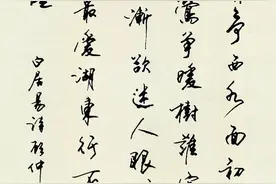 亭西水面初
鶯争暖樹誰家
漸欲迷人眼
最愛湖東行不
白居易詩